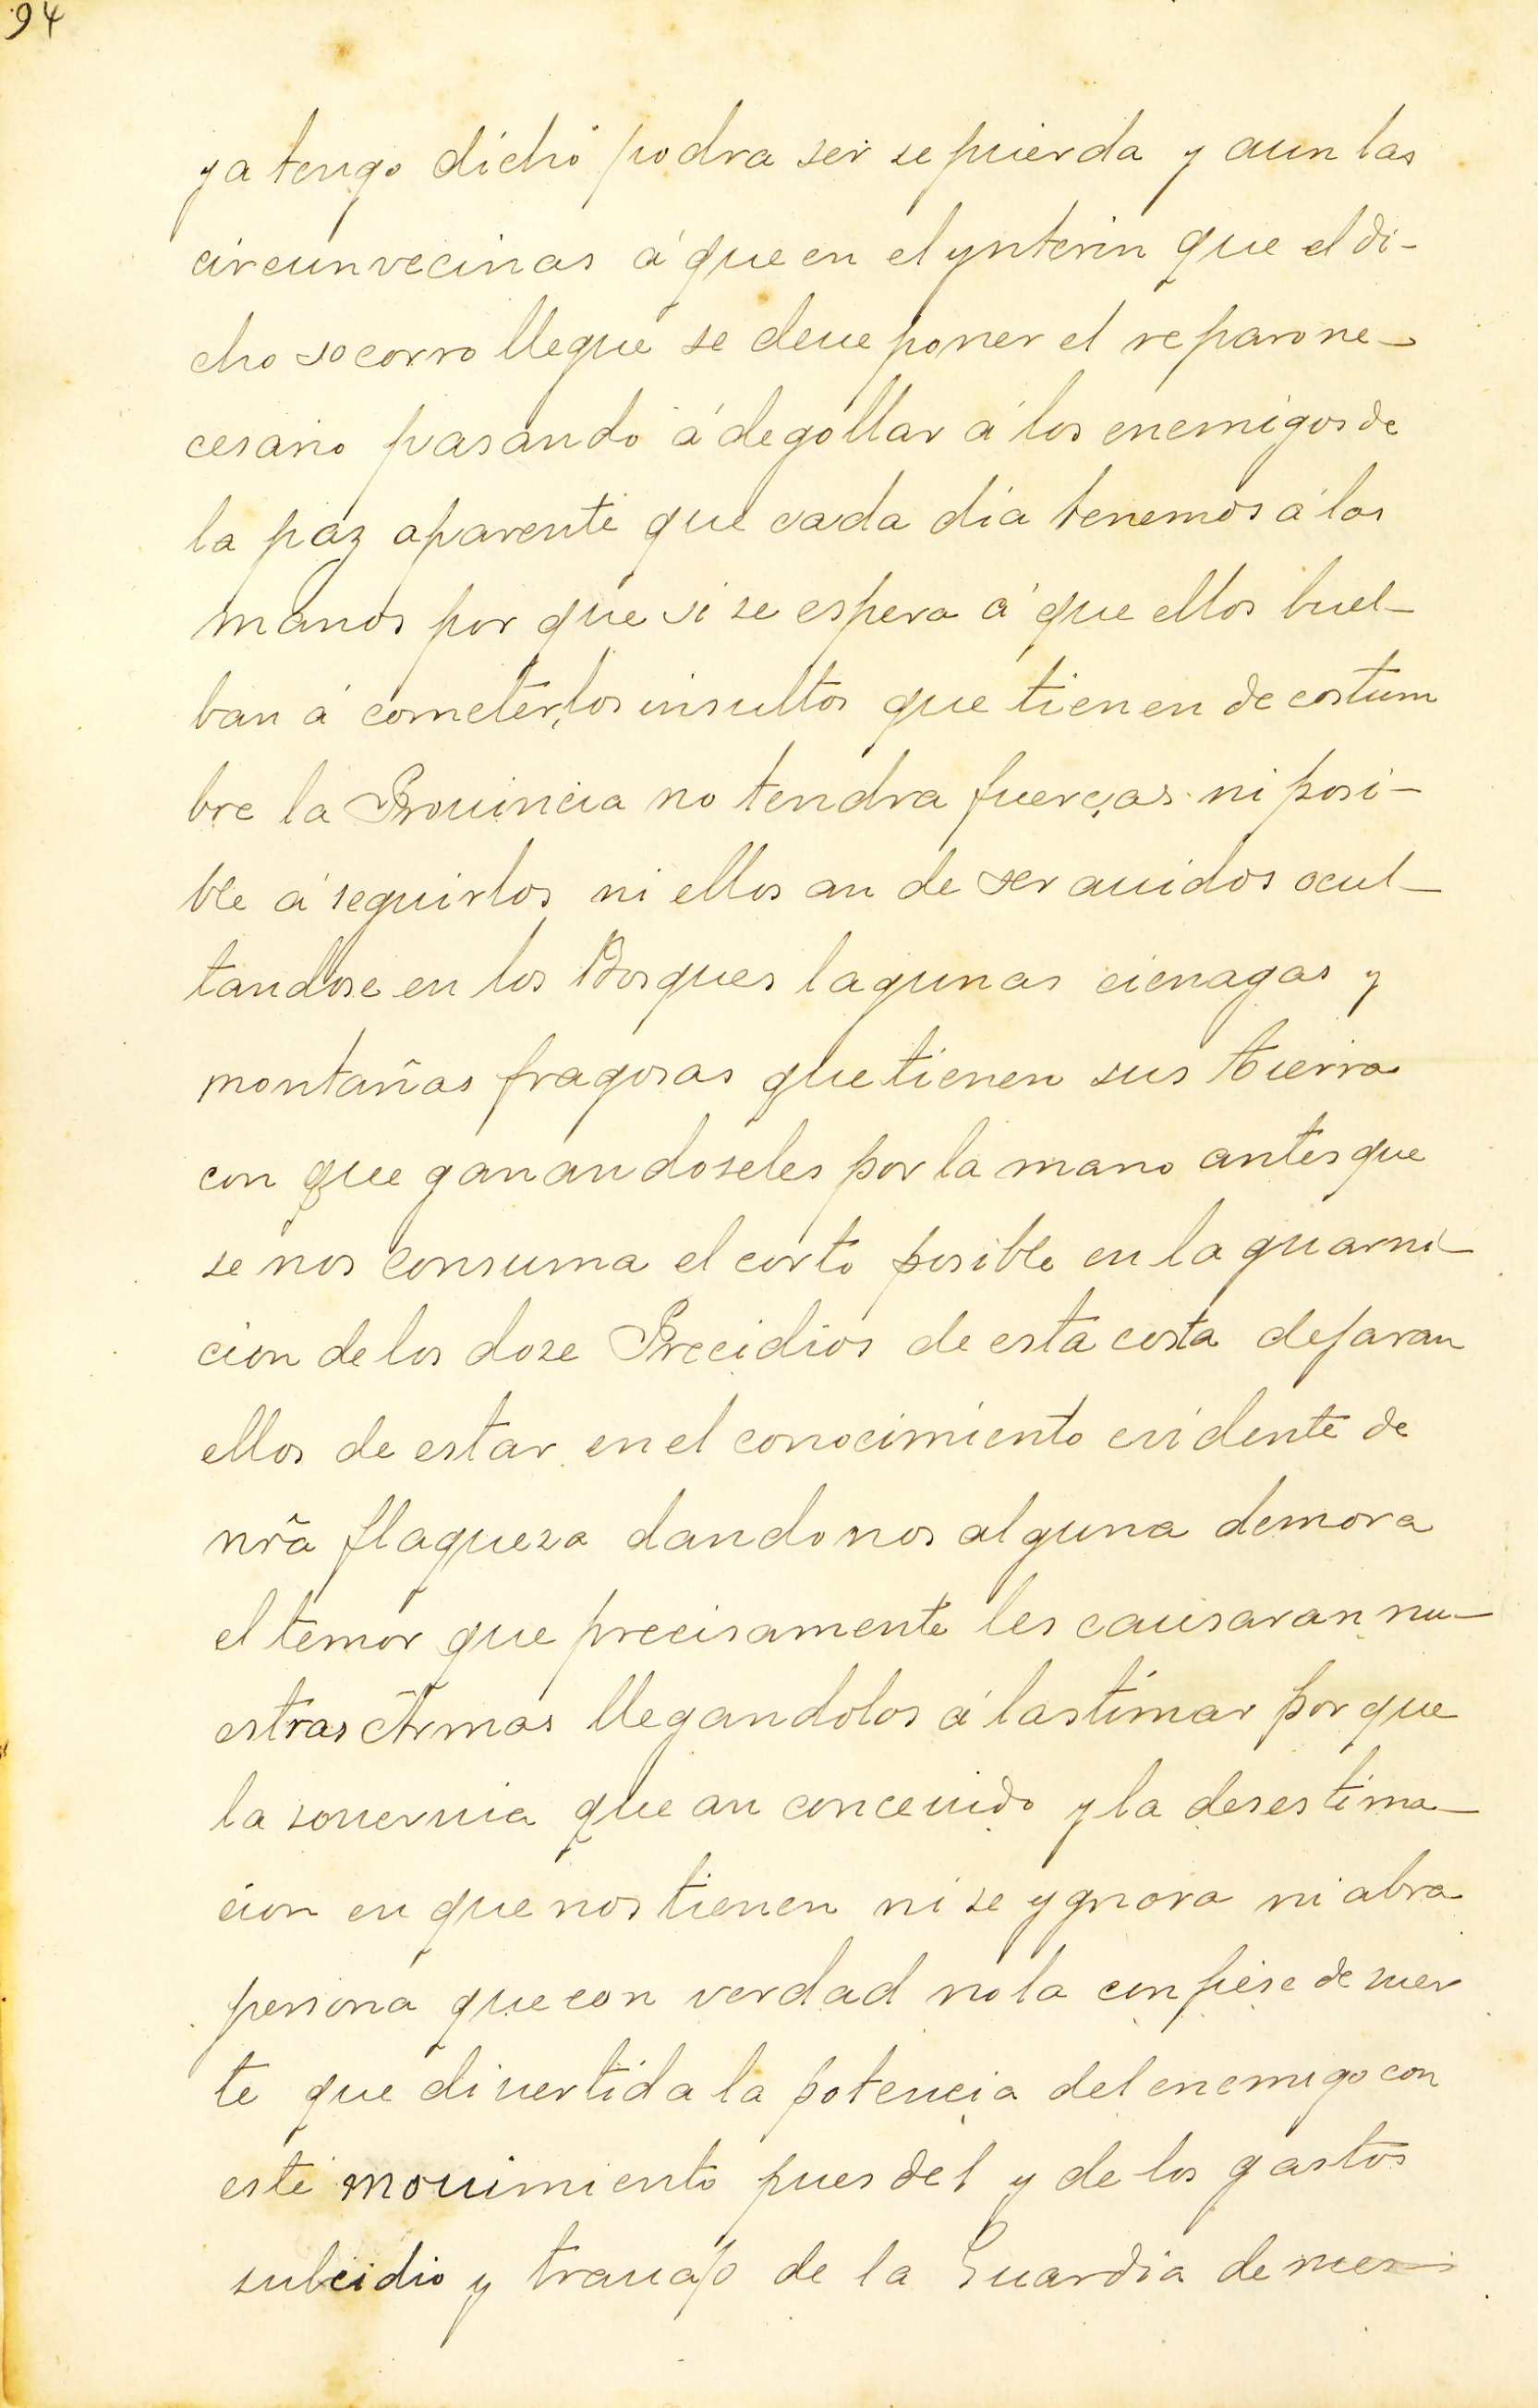 94
ya tengo dicho podra ser se pierda y aun las
circunvecinas á que en el ynterin que el di-
cho socorro llegue se deue poner el reparo ne-
cesario pasando á degollar á los enemigos de
la paz aparente que cada dia tenemos á las
manos por que si se espera á que ellos buel-
ban á cometer los insultos que tienen de costum
bre la Prouincia no tendra fuerças ni posi-
ble á seguirlos ni ellos an de ser auidos ocul-
tandose en los Bosques lagunas cienagas y
montañas fragosas que tienen sus tierras
con que ganandoseles por la mano antes que
se nos consuma el corto posible en la guarni-
cion de los doze Precidios de esta costa dejaran
ellos de estar en el conocimiento evidente de
nrã flaqueza dandonos alguna demora
el temor que precisamente les causaran nu-
estras Armas llegandolos á lastimar por que
la souervia que an conceuido y la desestima-
cion en que nos tienen ni se ygnora ni abra
persona que con verdad no la confiese de suer
te que diuertida la potencia del enemigo con
este mouimiento pues del y de los gastos
subcidio y trauajo de la Guardia de mes-